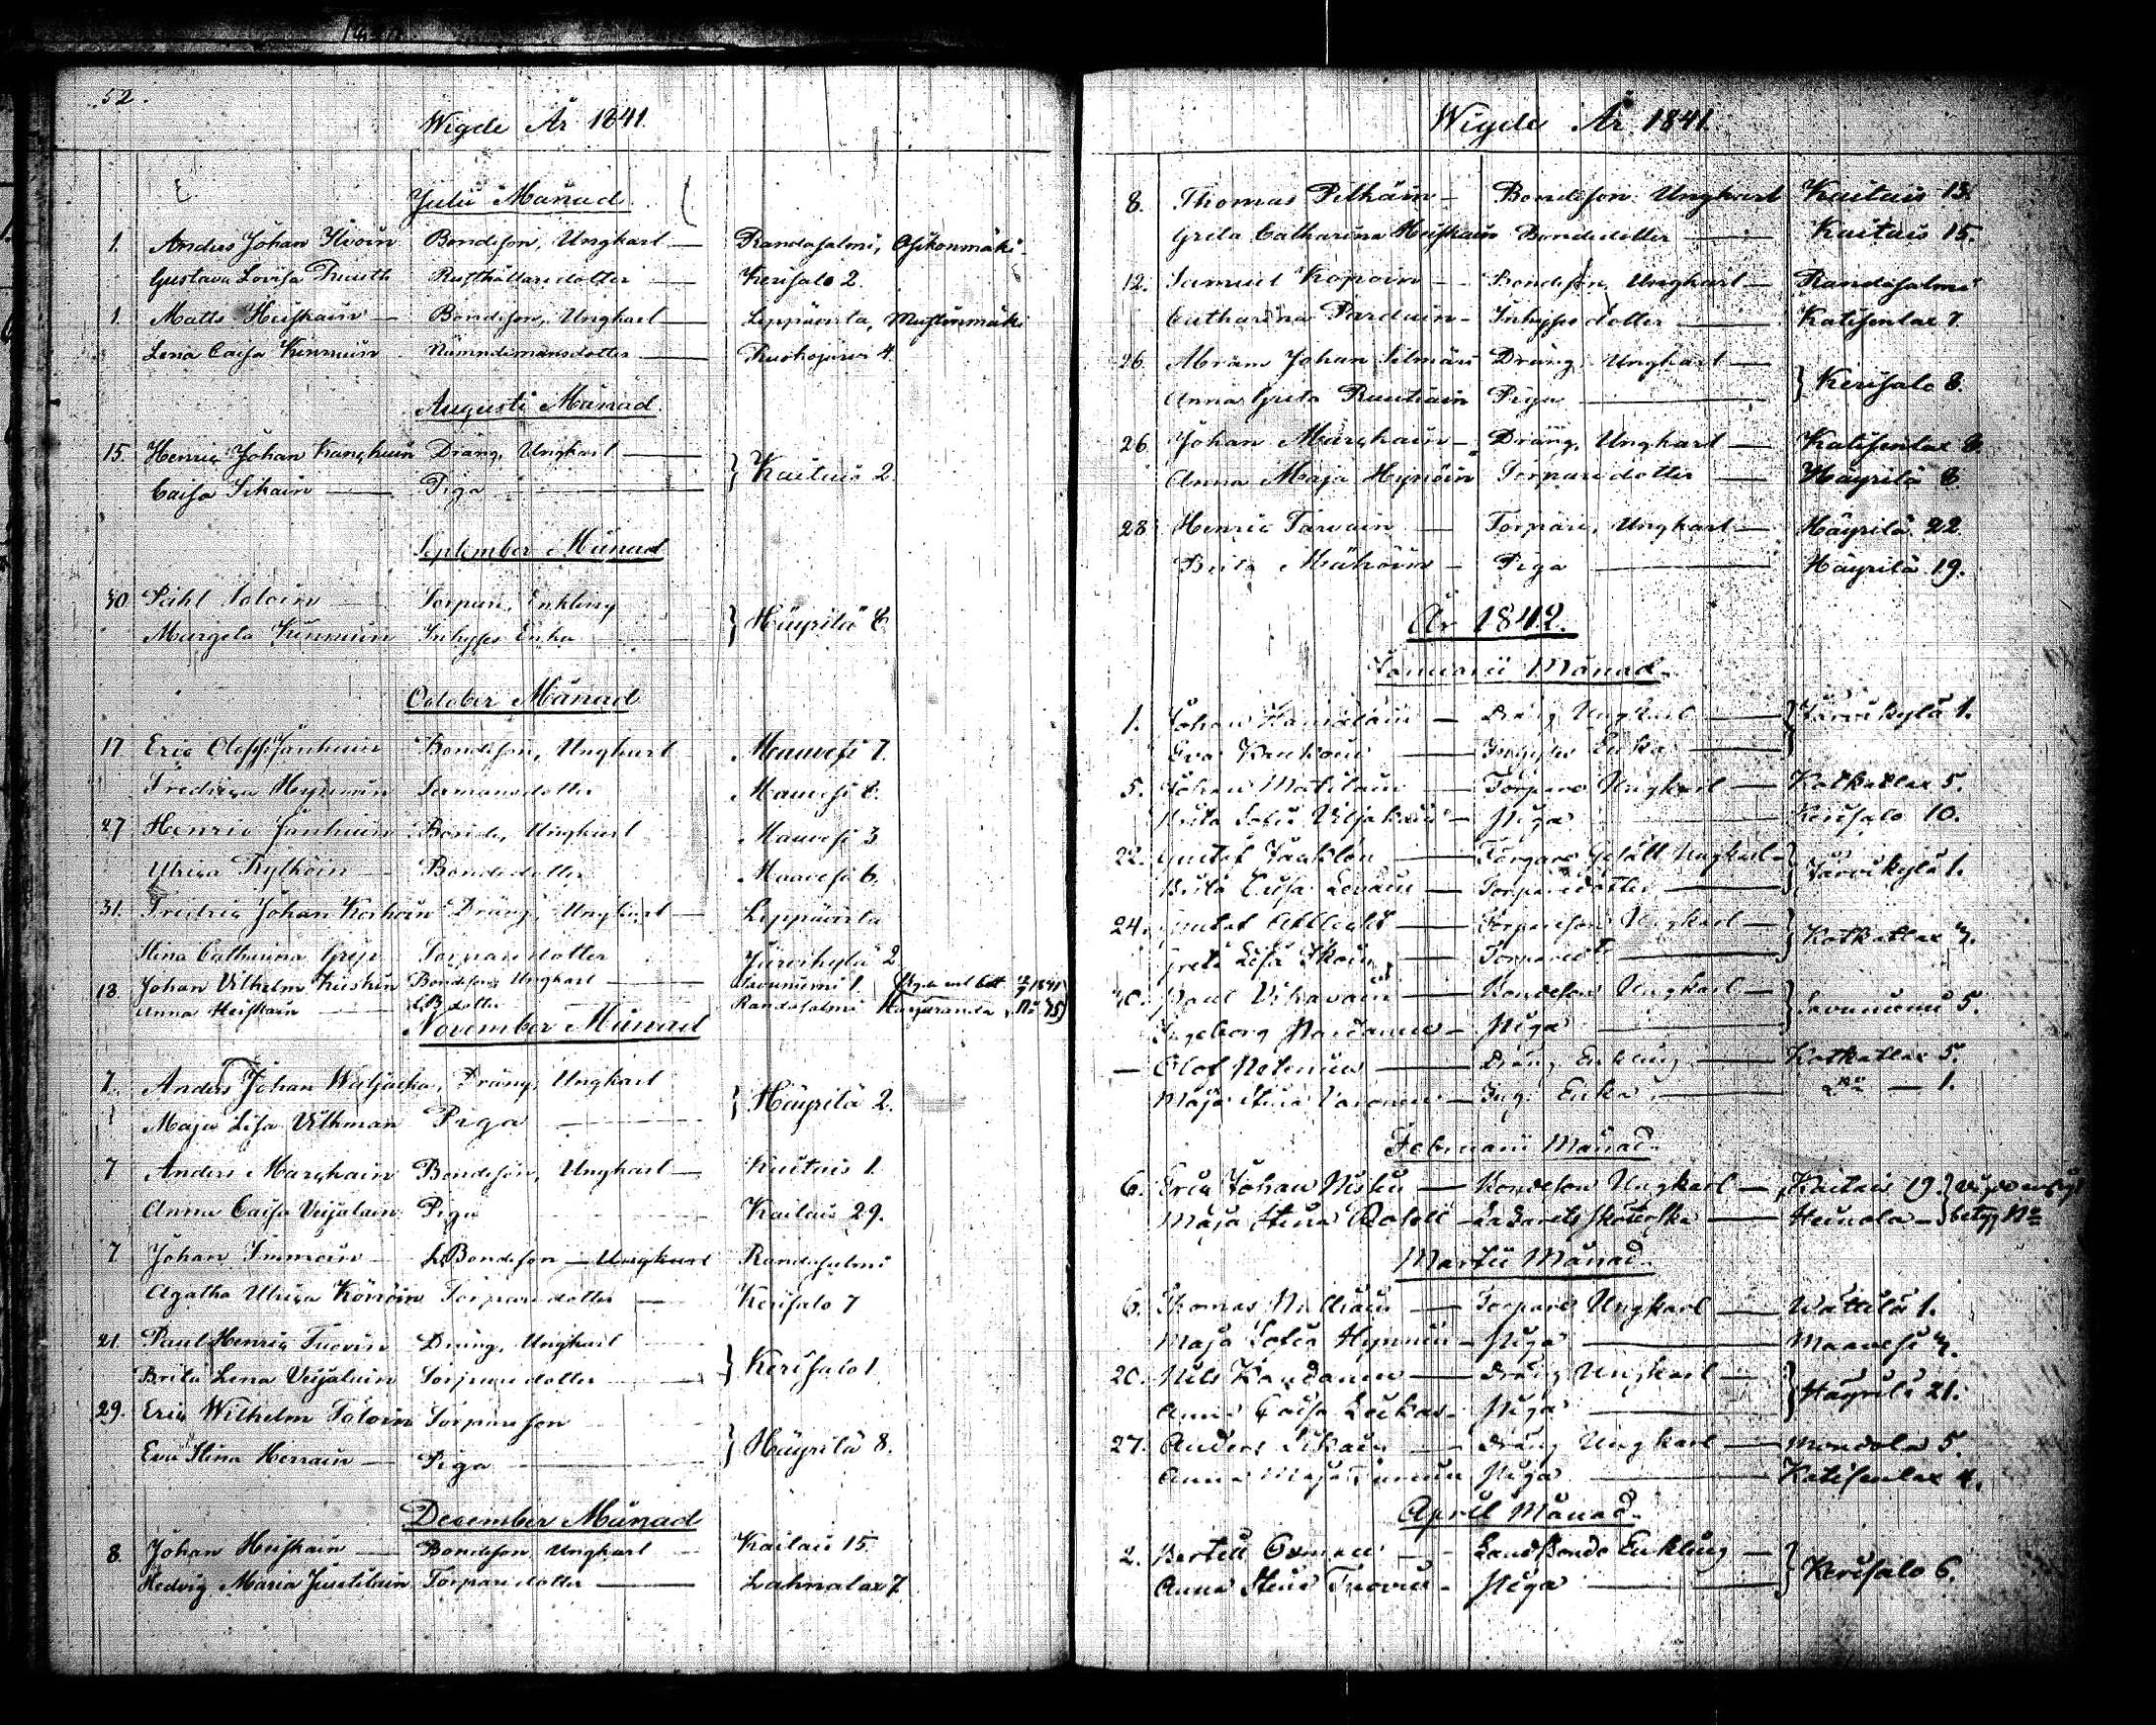 52.
Wigde År 1841.
Julii Månad
1. Anders Johan Ilvoin Bondeson, Ungkarl — Randasalmi, Asikonmäki
Gustava Lovisa Truuth Rusthållaredotter — Kerisalo 2.
1. Matts Heiskain — Bondeson, Ungkarl — Leppävirta, Mustinmäki
Lena Caisa Kinnuin Nämndemansdotter — Ruokojärvi 4.
Augusti Månad.
15. Henric Johan Kanghuin Dräng, Ungkarl —
Caisa Sikain — Piga — } Kaitais 2.
September Månad
30 Påhl Loloin — Torpare, Enkling
Margeta Kinnuin Inhyses Enka } Häyrilä 8
October Månad
17 Eric Oloff Janhuin Bondeson, Ungkarl Maavesi 7.
Fredrica Hynnuin Sexmansdotter Maavesi 8.
27 Henric Janhuin Bonde, Ungkarl Maavesi 3
Ulrica Kylhöin — Bondedotter Maavesi 6.
31. Fredric Johan Korhoin Dräng, Ungkarl — Leppävirta
Stina Catharina Grep Torparedotter Järvikylä 2
13 Johan Vilhelm Kiiskin Bondeson, Ungkarl — Savunumi 1.
Anna Heiskain — LB dotter Randasalmi Harjuranda No 75)
November Månad
7. Anders Johan Waljacka, Dräng, Ungkarl
Maja Lisa Vithman Piga — } Häyrilä 2.
7 Anders Marghain Bondeson, Ungkarl — Kaitais 1.
Anna Caisa Veijalain Piga Kaitais 29.
7 Johan Immoin — LBondeson — Ungkarl Randasalmi
Agatha Ulrica Könöin Torparedotter — Kerisalo 7
21. Paul Henric Tuovin Dräng, Ungkarl
Brita Lena Veijalain Torparedotter — } Kerisalo 1
29. Eric Wilhelm Toloin Torpareson
Eva Stina Herrain — Piga — } Häyrilä 8.
December Månad
8. Johan Heiskain — Bondeson, Ungkarl Kaitais 15
Hedvig Maria Juutilain Torparedotter — Lahnalax 7.
Wigde År 1841.
8. Thomas Pelkäin — Bondeson Ungkarl Kaitais 13.
Greta Catharina Heiskain Bondedotter — Kaitais 15.
12. Samuel Kopoin — Bondeson, Ungkarl — Randasalmi
Catharina Parduin — Inhysesdotter — Katisenlax 7.
26. Abram Johan Silmäri Dräng, Ungkarl —
Anna Greta Ruutiain Piga — } Kerisalo 8.
26 Johan Marghain — Dräng, Ungkarl — Katisenlax 8.
Anna Maja Hynöin Torparedotter — Häyrilä 8
28 Henric Tarvain — Torpare, Ungkarl — Häyrilä 22.
Brita Mähöin — Piga — Häyrilä 19.
År 1842.
Januarii Månad.
1. Johan Hämäläin — Dräng Ungkarl —
Eva Kaukoin — Inhyses Enka — } Järvikylä 1.
5. Johan Matilain — Torpare Ungkarl — Kotkatlax 5.
Brita Sofia Viljakain — Piga Kerisalo 10.
22. Gustaf Jacklén — Torpare Gesäll Ungkarl —
Brita Caisa Leväin — Torparedotter — } Järvikylä 1.
24. Gustaf Ahllcaht — Torpareson Ungkarl —
Greta Lisa Ikoin — Torpared:r — } Kotkatlax 7.
30. Paul Vihavain — Bondeson Ungkarl —
Ingeborg Pardanen — Piga — } Savunumi 5.
— Olof Natunen — Dräng Enkling — Kotkatlax 5.
Maja Stina Varonen — Inh: Enka — D:o — 1.
Februarii Månad.
6. Eric Johan Nisku — Bondeson Ungkarl — Kaitais 19. }
Maja Stina Robell — Lazaretts Sköterska — Heinola — } betyg No
Martii Månad.
6. Thomas Nilliain — Torpare Ungkarl — Wättilä 1.
Maja Sofia Hynnin — Piga — Maavesi 7.
20. Nils Kondanen — Dräng Ungkarl —
Anna Caisa Leikas — Piga — } Häyrilä 21.
27. Anders Sikain — Dräng Ungkarl — Mondola 5.
Anna Maja Piga — Katisenlax 4.
April Månad.
2. Bertell Oxman — Landbonde Enkling —
Anna Stina Tuovin — Piga — } Kerisalo 6.